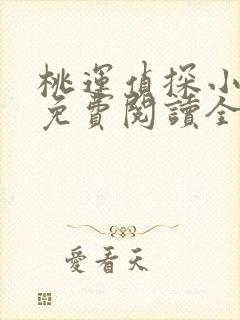 桃運偵探小
免費閱讀全
愛看天